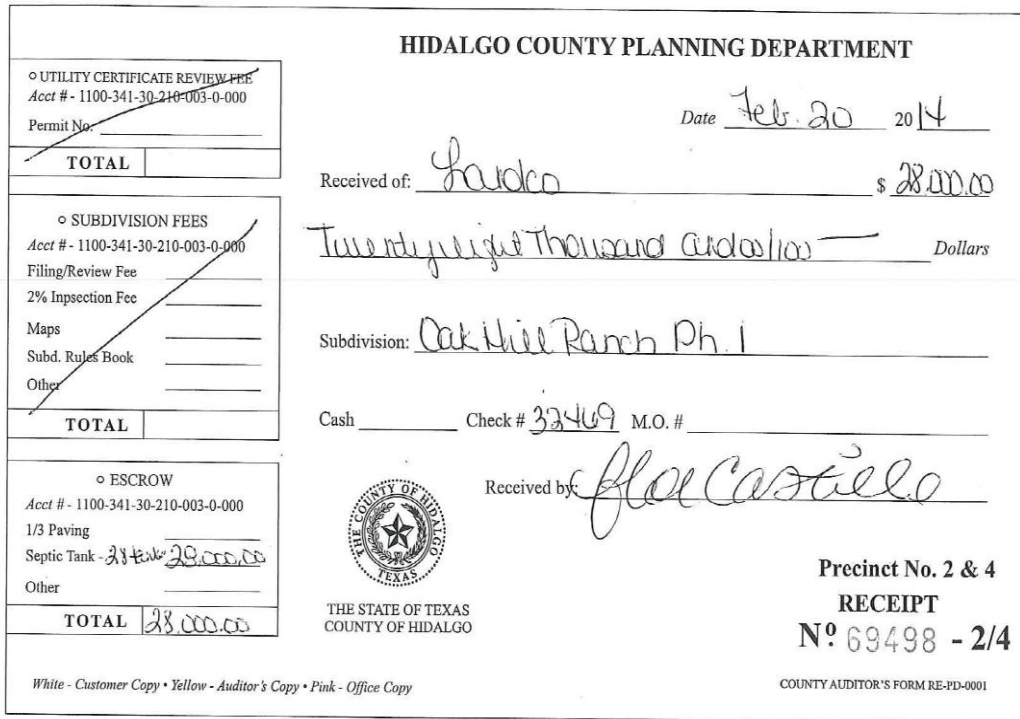 HIDALGO COUNTY PLANNING DEPARTMENT
o UTILITY CERTIFICATE REVIEW FEE
Acct # - 1100-341-30-210-003-0-000
Permit No.
TOTAL
o SUBDIVISION FEES
Acct # - 1100-341-30-210-003-0-000
Filing/Review Fee
2% Inpsection Fee
Maps
Subd. Rules Book
Other
TOTAL
o ESCROW
Acct # - 1100-341-30-210-003-0-000
1/3 Paving
Septic Tank - 28 tanks 28,000.00
Other
TOTAL 28,000.00
Date Feb. 20 2014
Received of: $ 28,000.00
Twenty eight Thousand and 00/100 Dollars
Subdivision: Oak Hill Ranch Ph. 1
Cash Check # 32469 M.O. #
Received by: Castillo
THE COUNTY OF HIDALGO
TEXAS
THE STATE OF TEXAS
COUNTY OF HIDALGO
Precinct No. 2 & 4
RECEIPT
Nº 69498 - 2/4
White - Customer Copy • Yellow - Auditor's Copy • Pink - Office Copy
COUNTY AUDITOR'S FORM RE-PD-0001